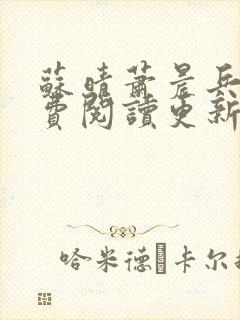 蘇晴蕭晨兵
費閱讀更新
哈米德·卡尔